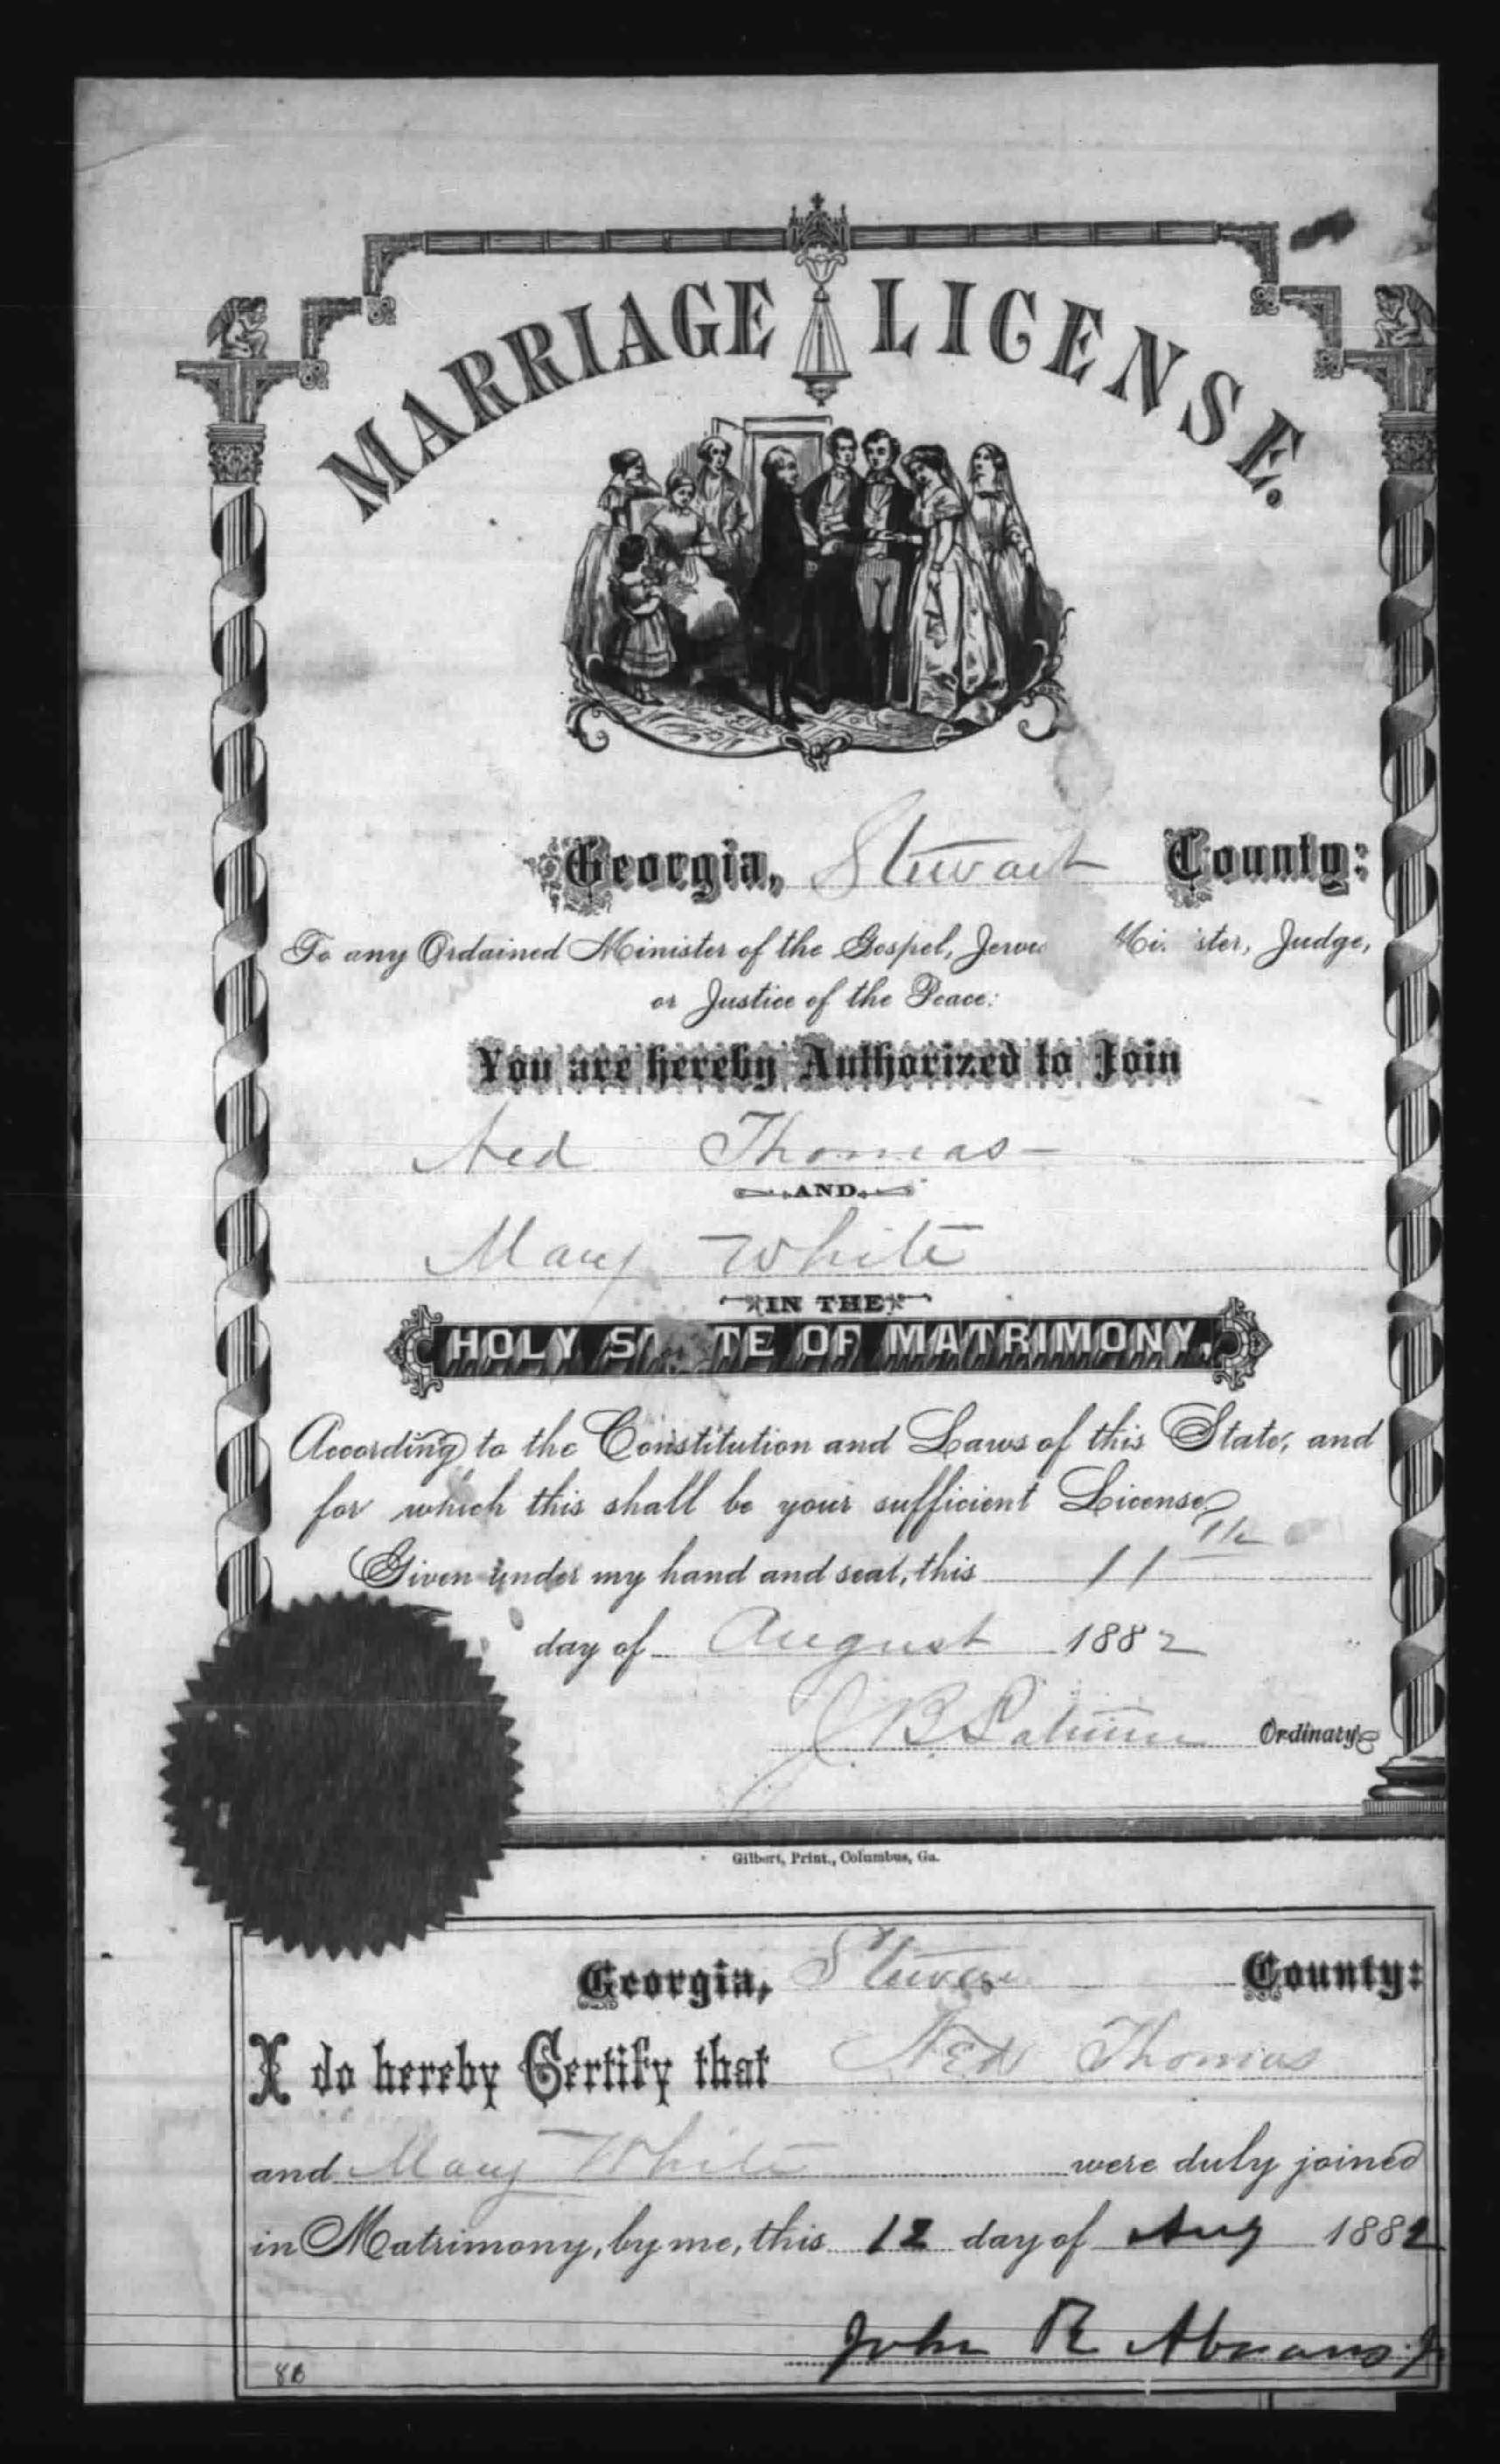 MARRIAGE LICENSE.
Georgia, Stewart County:
To any Ordained Minister of the Gospel, Judge,
or Justice of the Peace:
You are hereby Authorized to Join
Ned Thomas
AND
Mary White
IN THE
HOLY STATE OF MATRIMONY,
According to the Constitution and Laws of this State, and
for which this shall be your sufficient License.
Given under my hand and seal, this 11th
day of August 1882
J B Ordinary
Gilbert, Print., Columbus, Ga.
Georgia, County:
I do hereby Certify that Ned Thomas
and Mary White were duly joined
in Matrimony, by me, this 12 day of Aug 1882
John R Abrams
8B